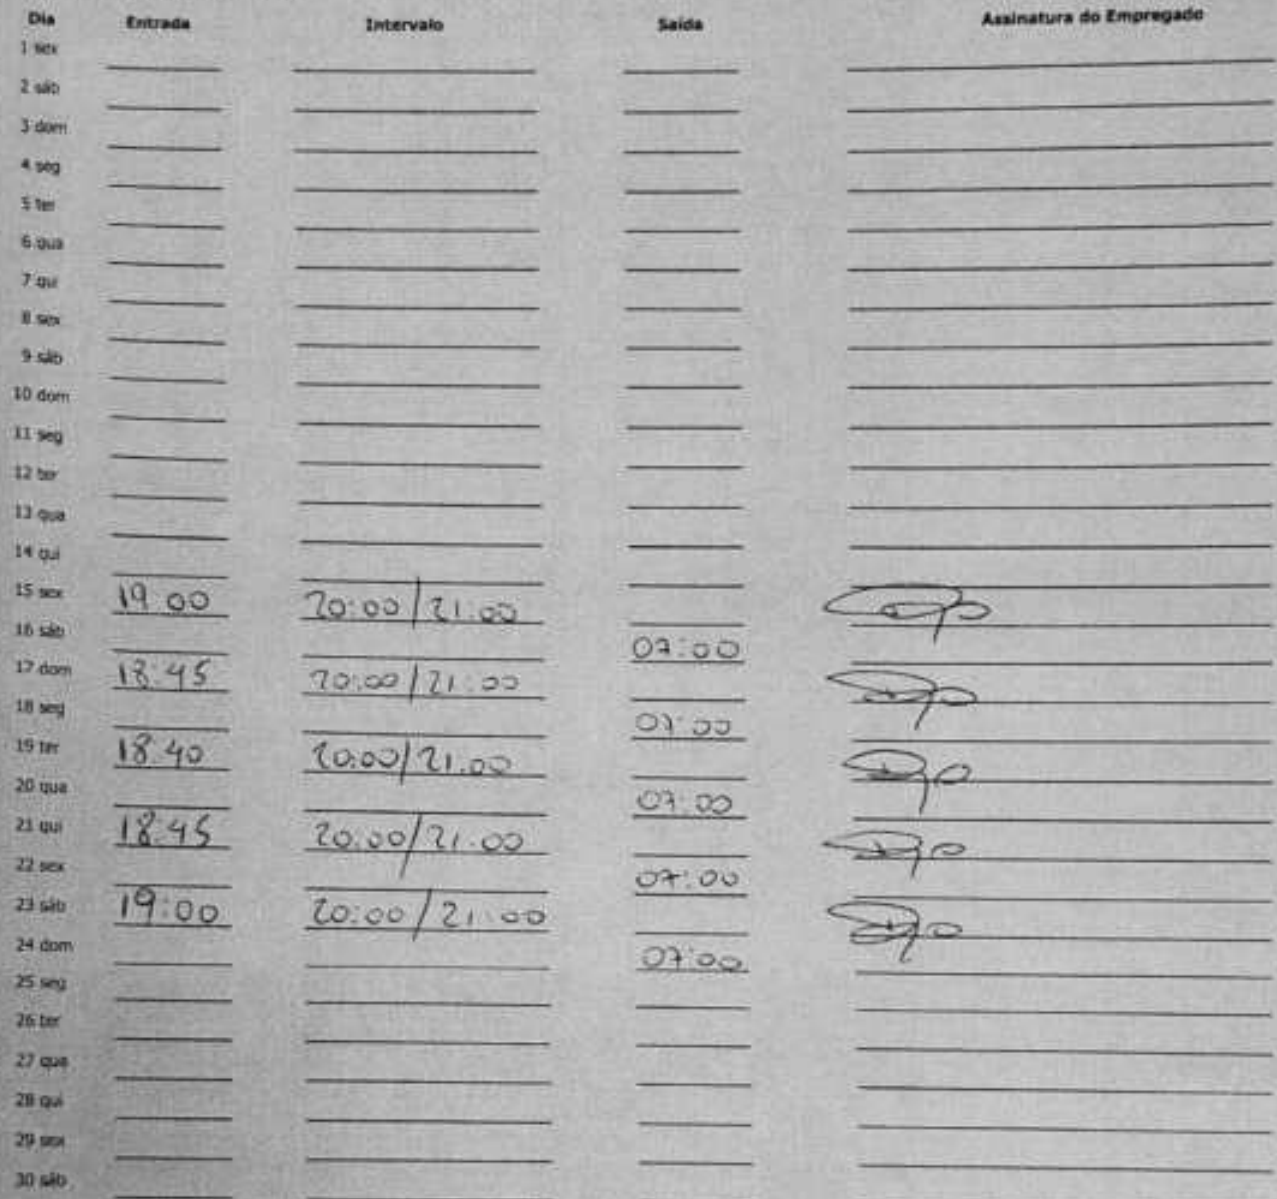 Dia Entrada Intervalo Saída Assinatura do Empregado
1 sex
2 sáb
3 dom
4 seg
5 ter
6 qua
7 qui
8 sex
9 sáb
10 dom
11 seg
12 ter
13 qua
14 qui
15 sex 19 00 20:00/21:00
16 sáb 07:00
17 dom 18:45 20:00/21:00
18 seg 07:00
19 ter 18:40 20:00/21:00
20 qua 07:00
21 qui 18:45 20:00/21:00
22 sex 07:00
23 sáb 19:00 20:00/21:00
24 dom 07:00
25 seg
26 ter
27 qua
28 qui
29 sex
30 sáb